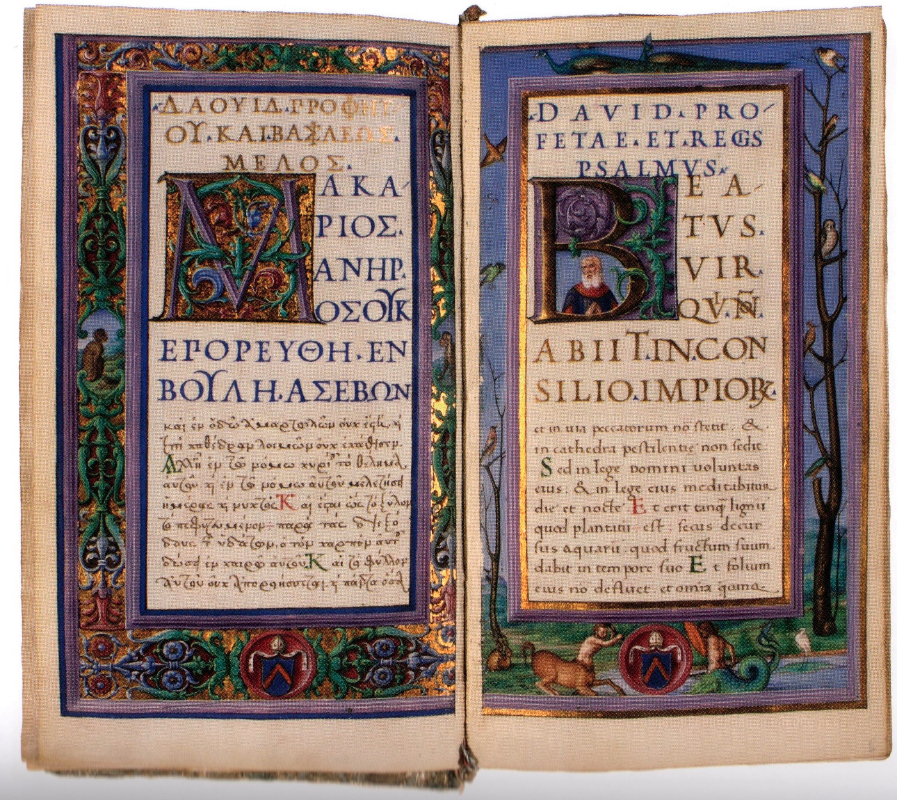 ΔΑΟΥΙΔ·ΠΡΟΦΗΤ
ΟΥ·ΚΑΙ·ΒΑΣΙΛΕΩΣ·
ΜΕΛΟΣ·
ΜΑΚΑ
ΡΙΟΣ·
ΑΝΗΡ·
ΟΣΟΥΚ
ΕΠΟΡΕΥΘΗ·ΕΝ
ΒΟΥΛΗ·ΑΣΕΒΩΝ
καὶ ἐν ὁδῷ ἁμαρτωλῶν οὐκ ἔστη, κ
καθέδραν λοιμῶν οὐκ ἐκάθισεν.
Ἀλλ' ἢ ἐν τῷ νόμῳ κυρί τὸ θέλημα
αὐτοῦ κ ἐν τῷ νόμῳ αὐτοῦ μελετήσει
ἡμέρας κ νυκτός Καὶ ἔσται ὡς τὸ ξύλον
τὸ πεφυτευμένον παρὰ τὰς διεξό
δους τ ὑδάτων, ὃ τὸν καρπὸν αυτ
δώσει ἐν καιρῷ αὐτοῦ Καὶ τὸ φύλλον
αὐτοῦ οὐκ ἀπορρυήσεται, κ πάντα ὅσα
DAVID·PRO
FETAE·ET·REGIS
PSALMVS·
BEA
TVS·
VIR·
QVI·Ñ·
ABIIT·IN·CON
SILIO·IMPIOꝜ
et in uia peccatorum nō stetit: &
in cathedra pestilentie non sedit
Sed in lege domini uoluntas
eius: & in lege eius meditabitur
die et nocte Et erit tanq̄ lignū
quod plantatū est secus decur
sus aquarū: quod fructum suum
dabit in tempore suo Et folium
eius nō defluet: et omīa